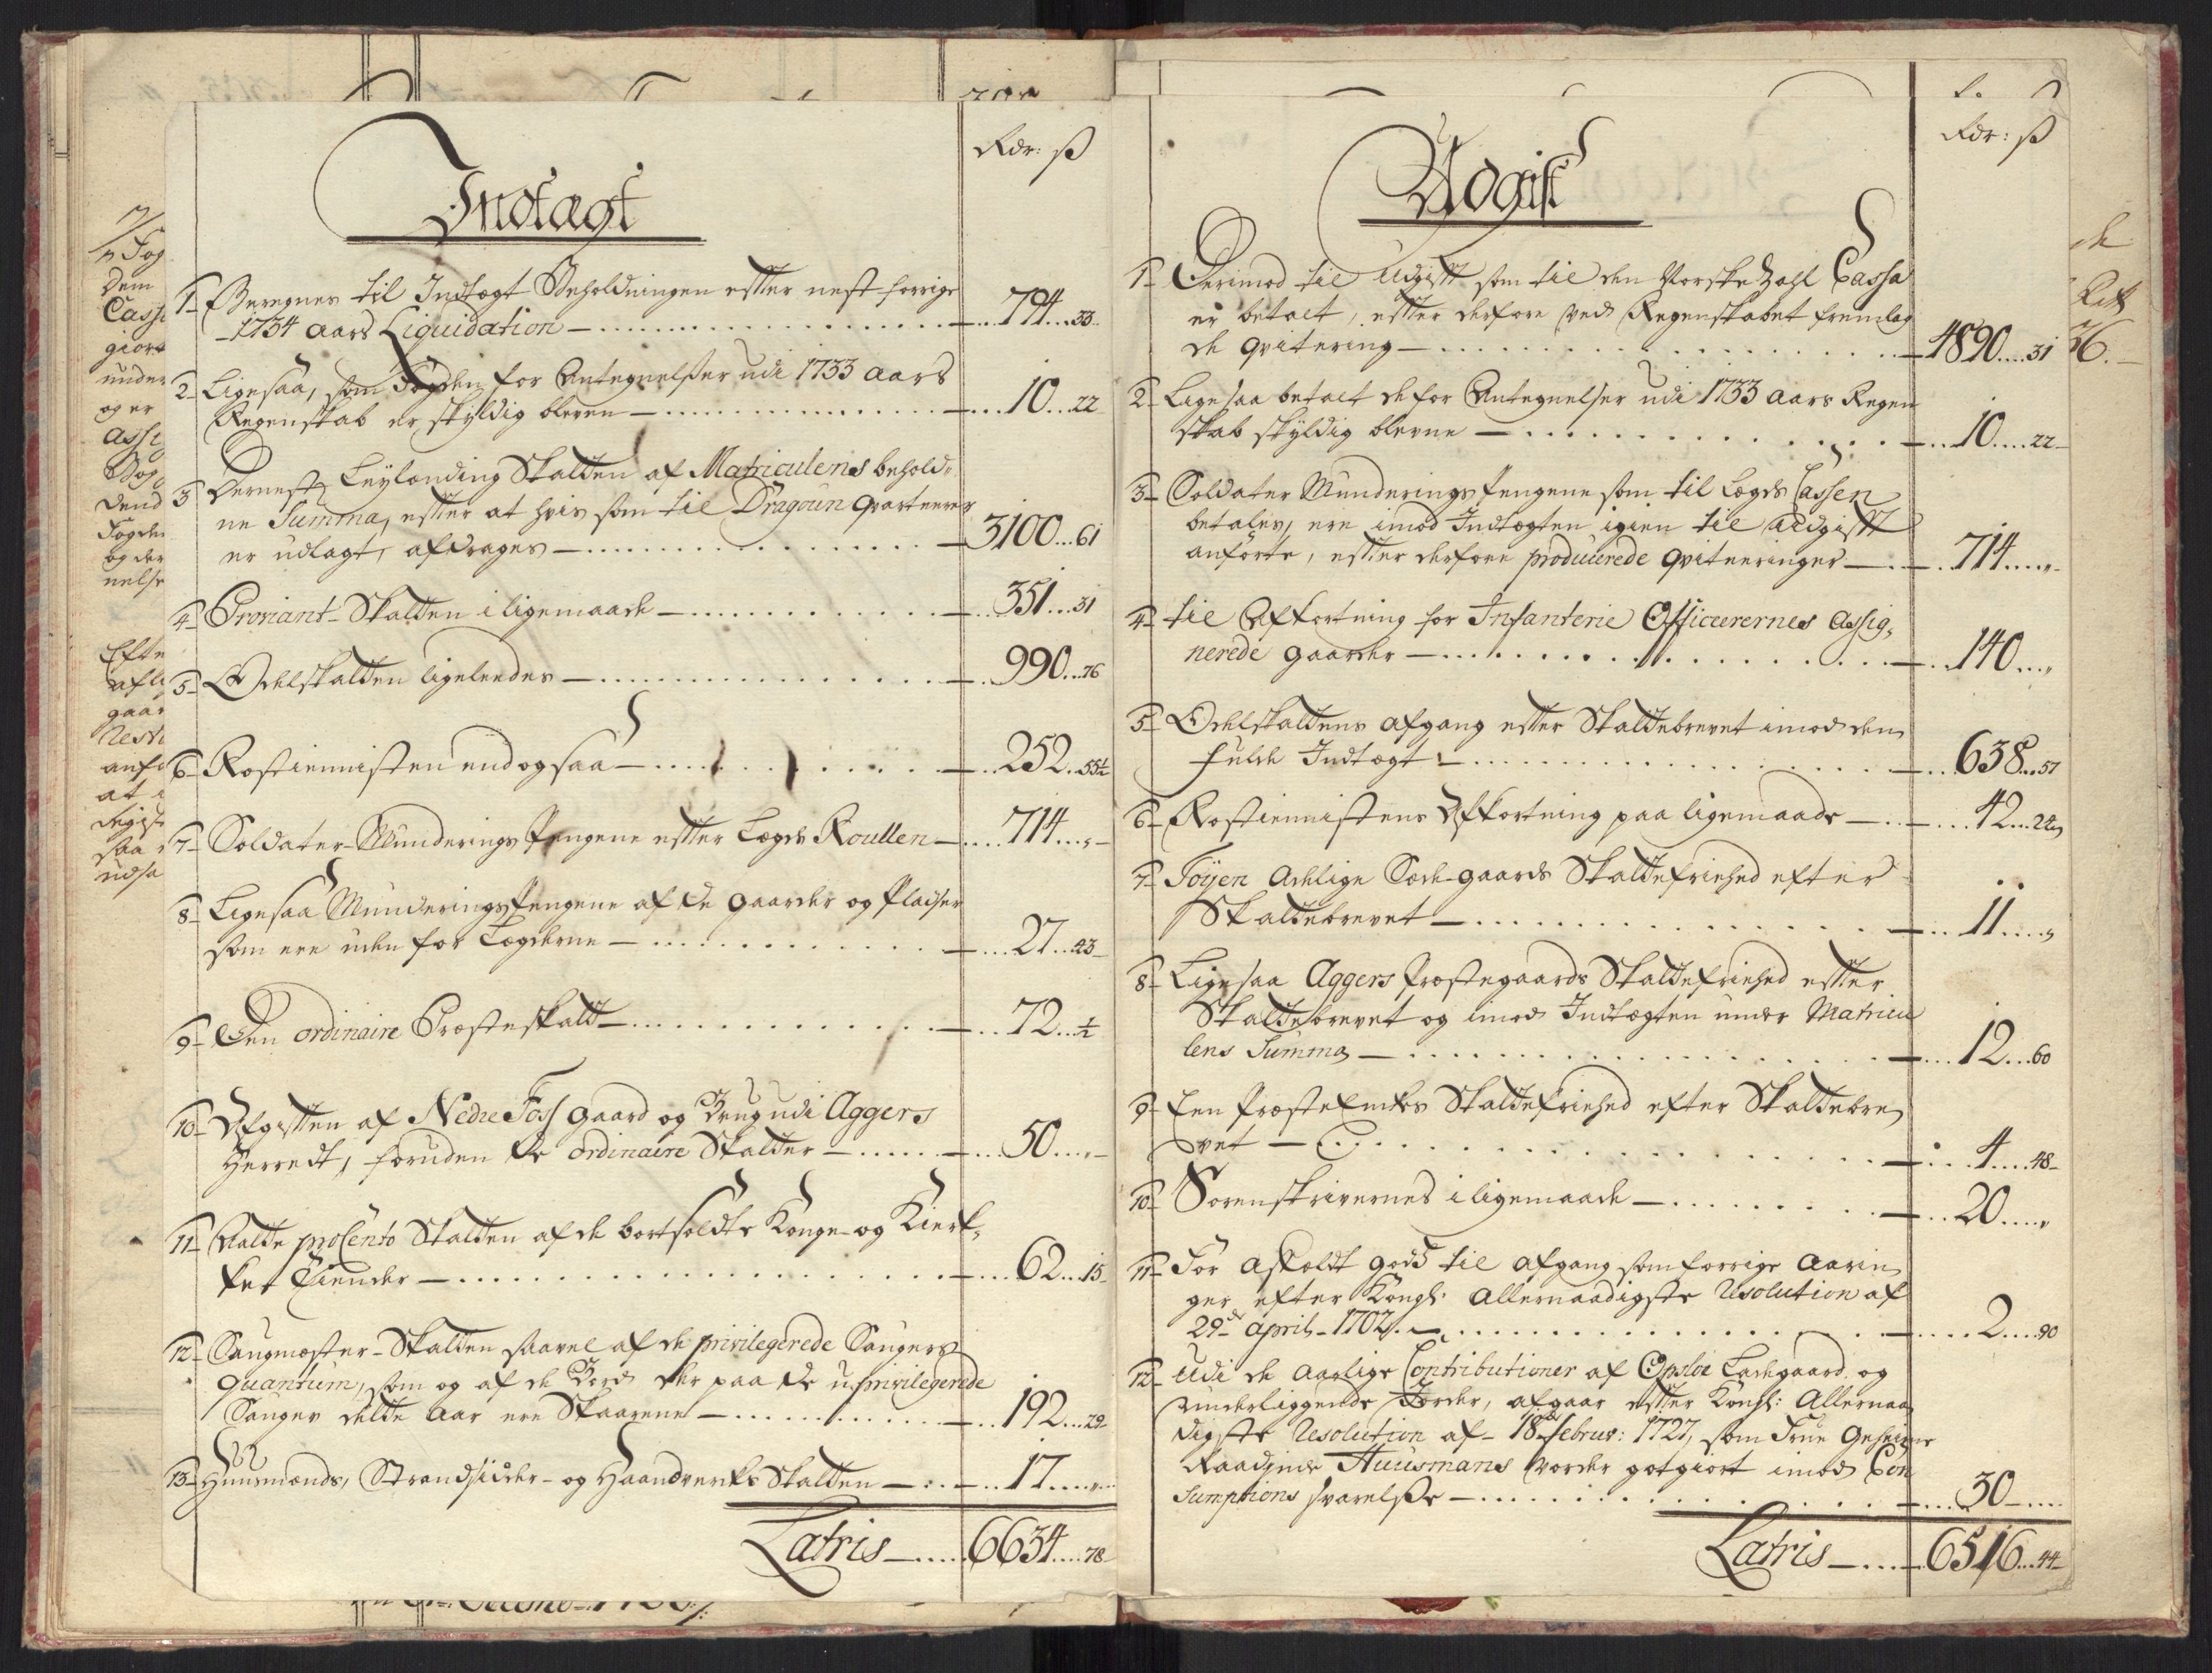 Rdr: ß
Indtægt
1 Beregnes til Indtægt Beholdningen efter nest forrige
1734 aars Liquidation 794 33
2 Ligesaa, som Fogden for Antegnelßer udi 1733 aars
Regenskab er skyldig bleven 10 22
3 Dernest Leylending Skatten af Matriculens behold-
ne Summa, efter at hvis som til Dragoun qvarteerer
er udlagt, afdrages 3100 61
4 Proviant-Skatten i ligemaade 351 31
5 Odelskatten ligeleedes 990 76
6 Rostiennisten endogsaa 252 55½
7 Soldater-Munderings Pengene efter Legds Roullen 714 „
8 Ligesaa Munderings Pengene af de gaarder og Pladser
som ere uden for Legderne 27 43
9 Den ordinaire Præsteskatt 72 ½
10 Afgiften af Nedre Foss gaard og Brug udi Aggers
Herredt, foruden de ordinaire Skatter 50 „
11 Halve proCento Skatten af de bortsoldte Konge- og Kierk-
ker Tiender 62 15
12 Saugmester-Skatten saavel af de privilegerede Saugers
quantum, som og af de Bord der paa de uprivilegerede
Sauger dette aar ere Skaarene 192 29
13 Huusmænds, Strandsidder- og Haandverks Skatten 17 „
Latris 6634 78
Rdr: ß
Udgift
1 Derimod til Udgift som til den Norske Zahl Cassa
er betalt, efter derfore ved Regenskabet fremlag
de qvitering 4890 31
2 Ligesaa betalt de for Antegnelser udi 1733 aars Regen
skab skyldig blevne 10 22
3 Soldater Munderings Pengene som til Legds Cassen
betales, ere imod Indtægten igien til Udgift
anførte, efter derfore producerede qviteeringer 714 „
4 til Afkortning for Infanterie Officerernes assig-
nerede gaarder 140 „
5 Odelskattens afgang efter Skattebrevet imod den
fulde Indtægt 638 57
6 Rostiennistens Afkortning paa ligemaade 42 24
7 Töyen Adelige Sæde-gaards Skattefriehed efter
Skattebrevet 11 „
8 Ligesaa Aggers Præstegaards Skattefriehed efter
Skattebrevet og imod Indtægten under Matricu
lens Summa 12 60
9 Een Præste Enkes Skattefriehed efter Skattebre
vet 4 48
10 Sorenskrivernes i ligemaade 20 „
11 For afkoldt gods til afgang som forrige Aarin
ger efter Kongl: Allernaadigste Resolution af
29de April 1702 2 90
12 Udi de Aarlige Contributioner af Opsloe Ladegaard og
Underliggende Jorder, afgaar efter Kongl: Allernaa
digste Resolution af 18de Februar: 1727, som Frue Geheime
Raadinde Huusmans vorder gotgiort imod Con
sumptions svarelße 30
Latris 6516 44